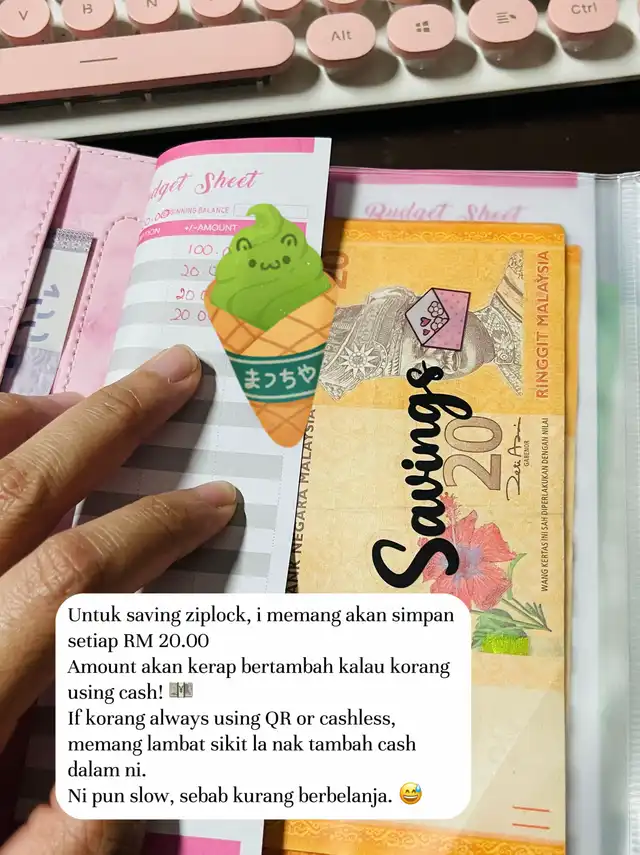 V
B
N
Alt
Ctrl
Budget Sheet
BEGINNING BALANCE
+/-AMOUNT
100.0
20.0
20.0
20.0
Budget Sheet
まっちゃ
Savings
20
RINGGIT MALAYSIA
20
GABENOR
WANG KERTAS INI SAH DIPERLAKUKAN DENGAN NILAI
BANK NEGARA MALAYSIA
Untuk saving ziplock, i memang akan simpan
setiap RM 20.00
Amount akan kerap bertambah kalau korang
using cash! 💵
If korang always using QR or cashless,
memang lambat sikit la nak tambah cash
dalam ni.
Ni pun slow, sebab kurang berbelanja. 😅